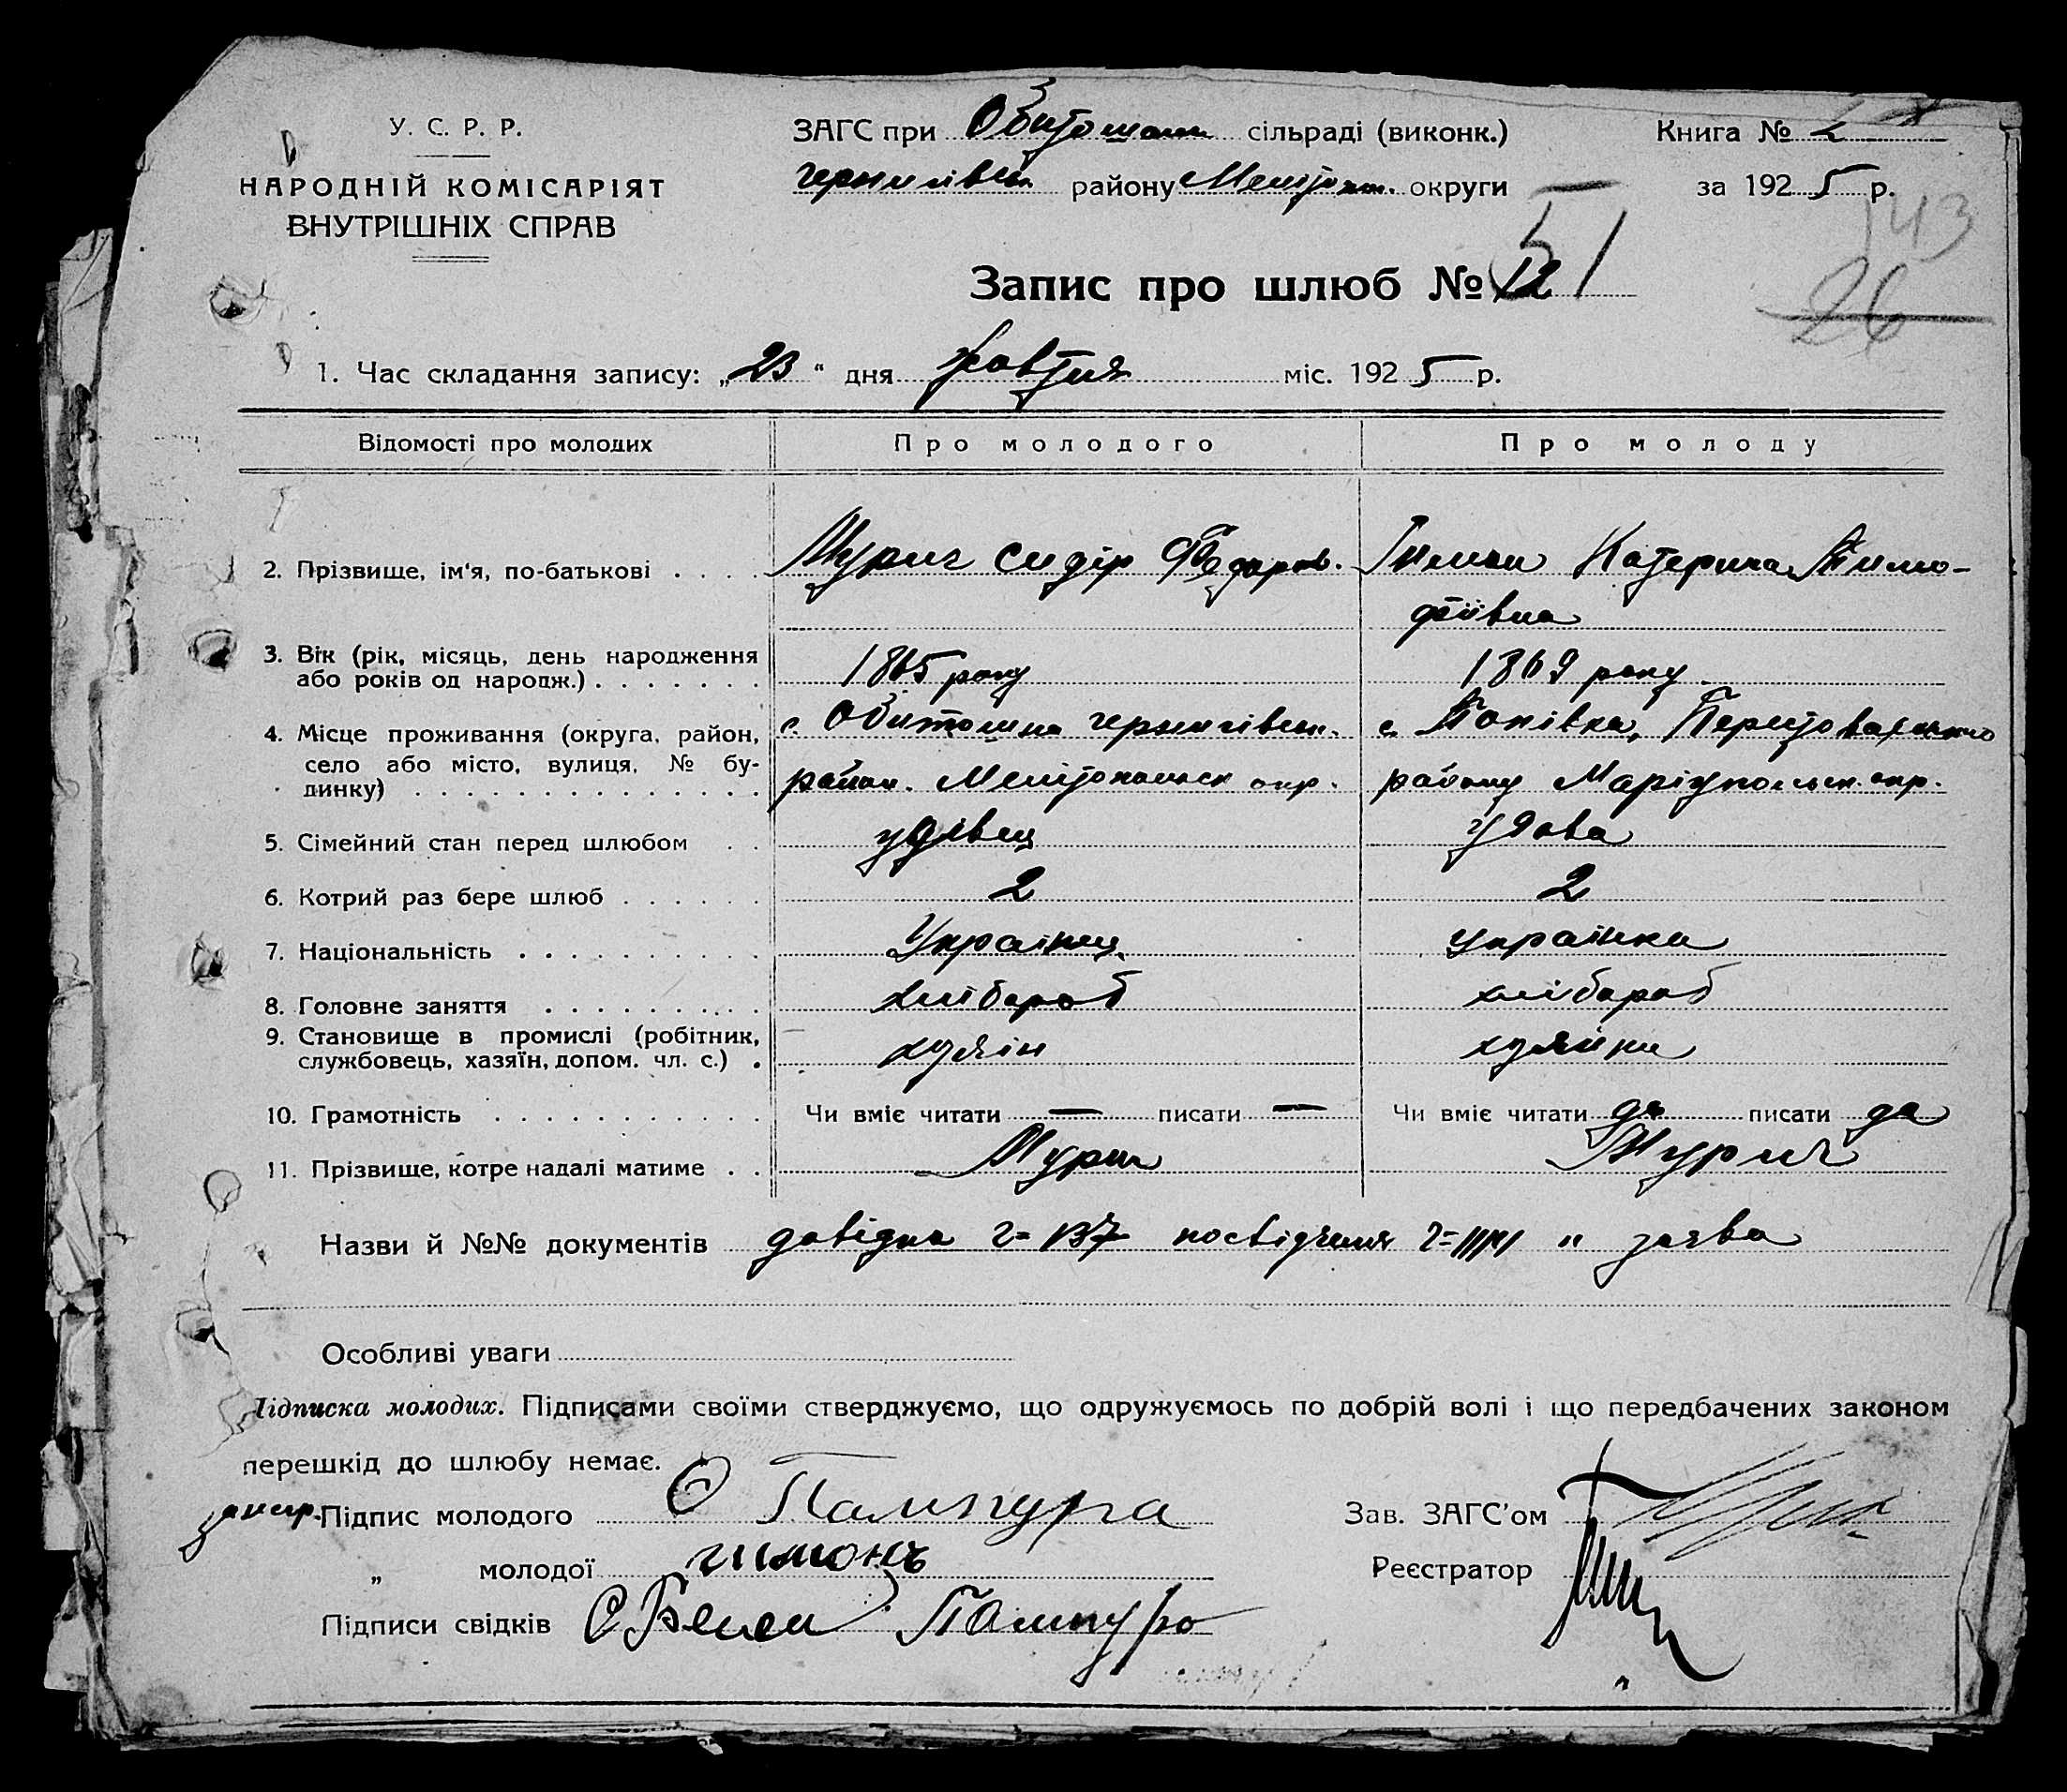 У. С. Р. Р.
НАРОДНІЙ КОМІСАРІЯТ
ВНУТРІШНІХ СПРАВ
ЗАГС при сільраді (виконк.)
району округи
Книга № 2
за 1925 р.
143
26
Запис про шлюб № 12 51
1. Час складання запису: „23“ дня жовтня міс. 1925 р.
Відомості про молодих Про молодого Про молоду
2. Прізвище, ім'я, по-батькові . . . . Мурич Сидір Федоров. Катерина Тимо-
фіївна
3. Вік (рік, місяць, день народження
або років од народж.) . . . . . . . 1865 року 1869 року
4. Місце проживання (округа, район,
село або місто, вулиця, № бу-
динку) . . . . . . . . . . . . . .
с. Обиточна чернигівськ. с. Попівка,
район. Мелітопольськ окр. району Маріупольськ. окр.
5. Сімейний стан перед шлюбом . . удівец удова
6. Котрий раз бере шлюб . . . . . . 2 2
7. Національність . . . . . . . . . . Українец українка
8. Головне заняття . . . . . . . . . хлібороб хлібороб
9. Становище в промислі (робітник,
службовець, хазяїн, допом. чл. с.) .
10. Грамотність . . . . . . . . . . . Чи вміє читати — писати — Чи вміє читати да писати да
11. Прізвище, котре надалі матиме . . Мурич Мурич
Назви й №№ документів довідка посвідчення заява
Особливі уваги
Підписка молодих. Підписами своїми стверджуємо, що одружуємось по добрій волі і що передбачених законом
перешкід до шлюбу немає.
Підпис молодого Пампура
„ молодої гимонъ
Підписи свідків Пампура
Зав. ЗАГС'ом
Реєстратор